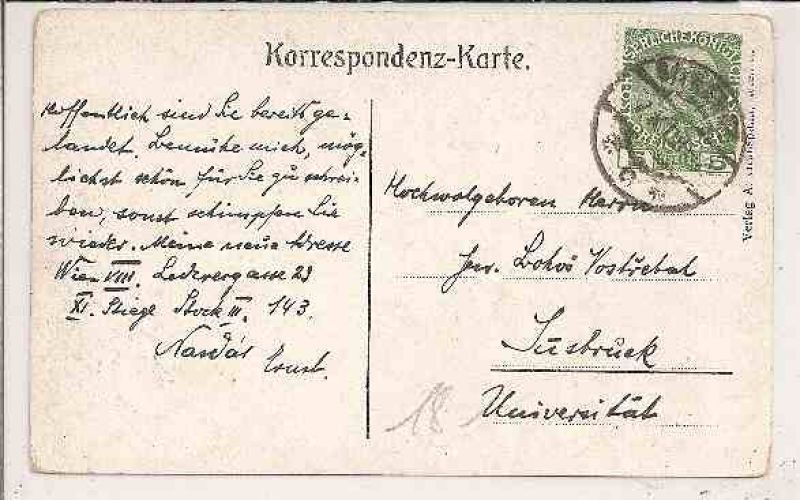 Korrespondenz-Karte.
Hoffentlich sind Sie bereits ge-
landet. Bemühe mich, mög-
lichst schön für Sie zu schrei-
ben, sonst schimpfen Sie
wieder. Meine neue Adresse
Wien VIII. Lederergasse 23
XI. Stiege Stock III. 143.
Ernst.
Hochwolgeboren Herrn
Innsbruck
Universität
18
5
Verlag A.